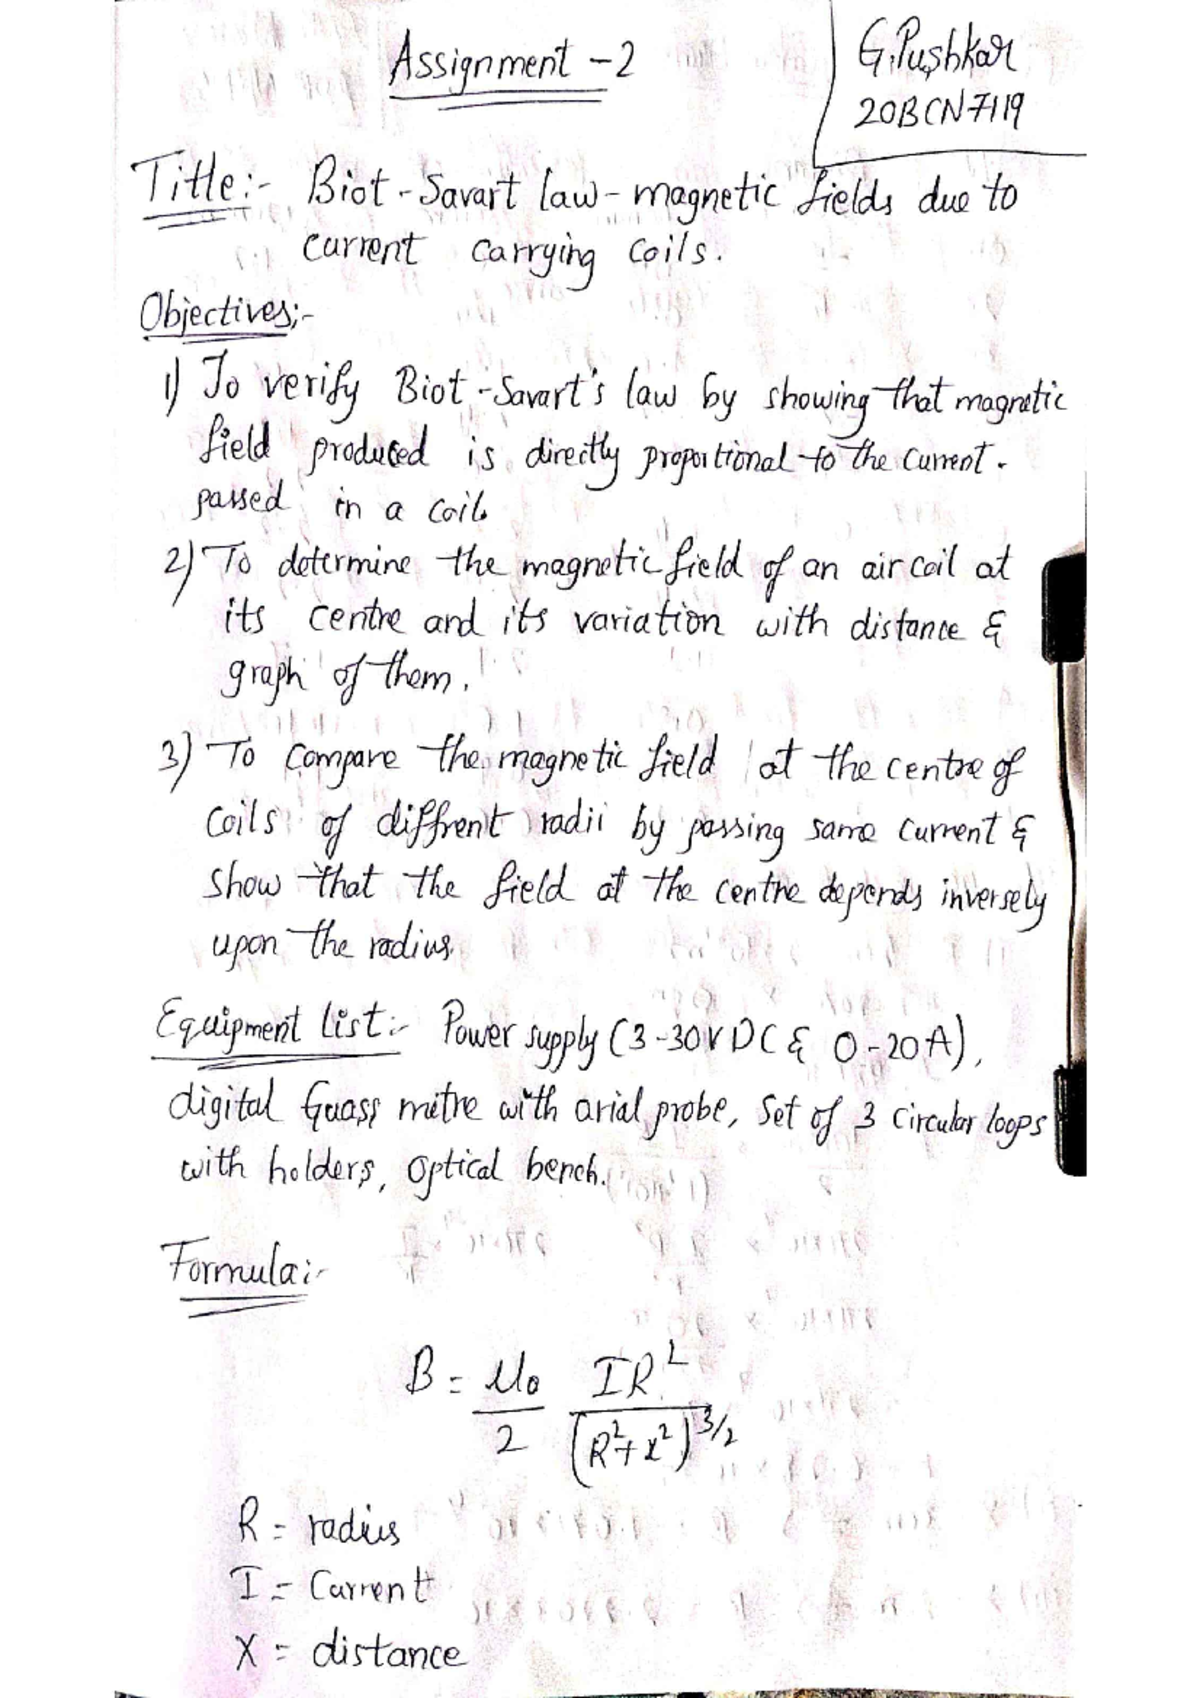 Assignment - 2
G.Pushkar
20BCN7119
Title:- Biot-Savart law - magnetic fields due to
current carrying coils.
Objectives:-
1) To verify Biot-Savart's law by showing that magnetic
field produced is directly proportional to the current.
passed in a coil.
2) To determine the magnetic field of an air coil at
its centre and its variation with distance &
graph of them.
3) To compare the magnetic field at the centre of
coils of diffrent radii by passing same current &
show that the field at the centre depends inversely
upon the radius.
Equipment list:- Power supply (3-30V DC & 0-20A),
digital Guass mitre with arial probe, Set of 3 circular loops
with holders, optical bench.
Formula:-
B = μ₀/2 IR²/(R²+x²)^3/2
R = radius
I = Current
X = distance